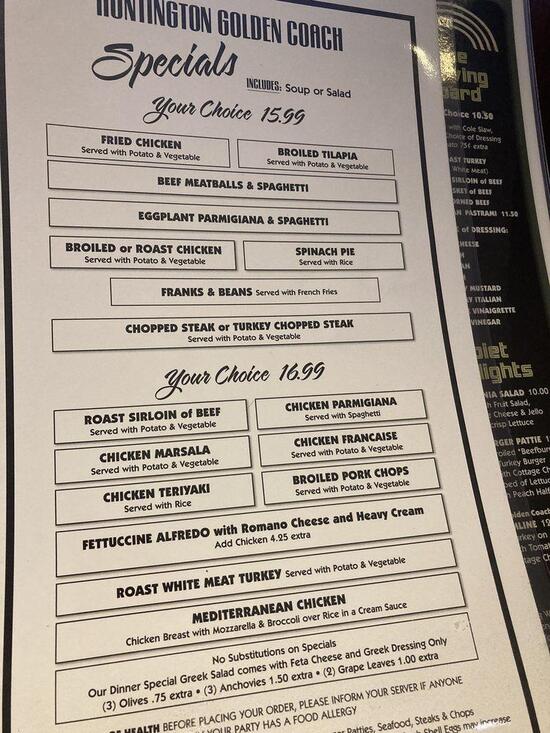 HUNTINGTON GOLDEN COACH
Specials
INCLUDES: Soup or Salad
Your Choice 15.99
FRIED CHICKEN
Served with Potato & Vegetable
BROILED TILAPIA
Served with Potato & Vegetable
BEEF MEATBALLS & SPAGHETTI
EGGPLANT PARMIGIANA & SPAGHETTI
BROILED or ROAST CHICKEN
Served with Potato & Vegetable
SPINACH PIE
Served with Rice
FRANKS & BEANS Served with French Fries
CHOPPED STEAK or TURKEY CHOPPED STEAK
Served with Potato & Vegetable
Your Choice 16.99
ROAST SIRLOIN of BEEF
Served with Potato & Vegetable
CHICKEN PARMIGIANA
Served with Spaghetti
CHICKEN MARSALA
Served with Potato & Vegetable
CHICKEN FRANCAISE
Served with Potato & Vegetable
CHICKEN TERIYAKI
Served with Rice
BROILED PORK CHOPS
Served with Potato & Vegetable
FETTUCCINE ALFREDO with Romano Cheese and Heavy Cream
Add Chicken 4.25 extra
ROAST WHITE MEAT TURKEY Served with Potato & Vegetable
MEDITERRANEAN CHICKEN
Chicken Breast with Mozzarella & Broccoli over Rice in a Cream Sauce
No Substitutions on Specials
Our Dinner Special Greek Salad comes with Feta Cheese and Greek Dressing Only
(3) Olives .75 extra • (3) Anchovies 1.50 extra • (2) Grape Leaves 1.00 extra
HEALTH BEFORE PLACING YOUR ORDER, PLEASE INFORM YOUR SERVER IF ANYONE
YOUR PARTY HAS A FOOD ALLERGY
Patties, Seafood, Steaks & Chops
Shell Eggs may increase
Choice 10.50
with Cole Slaw,
Choice of Dressing
75¢ extra
TURKEY
White Meat)
SIRLOIN of BEEF
of BEEF
BEEF
PASTRAMI 11.50
of DRESSING:
MUSTARD
ITALIAN
VINAIGRETTE
VINEGAR
SALAD 10.00
Fruit Salad,
Cheese & Jello
Crisp Lettuce
PATTIE
Turkey Burger
Cottage
of
Peach Half
Golden Coach
on